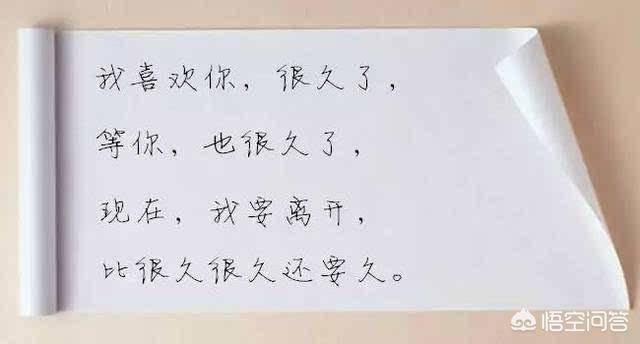 我喜欢你，很久了，
等你，也很久了，
现在，我要离开，
比很久很久还要久。
悟空问答